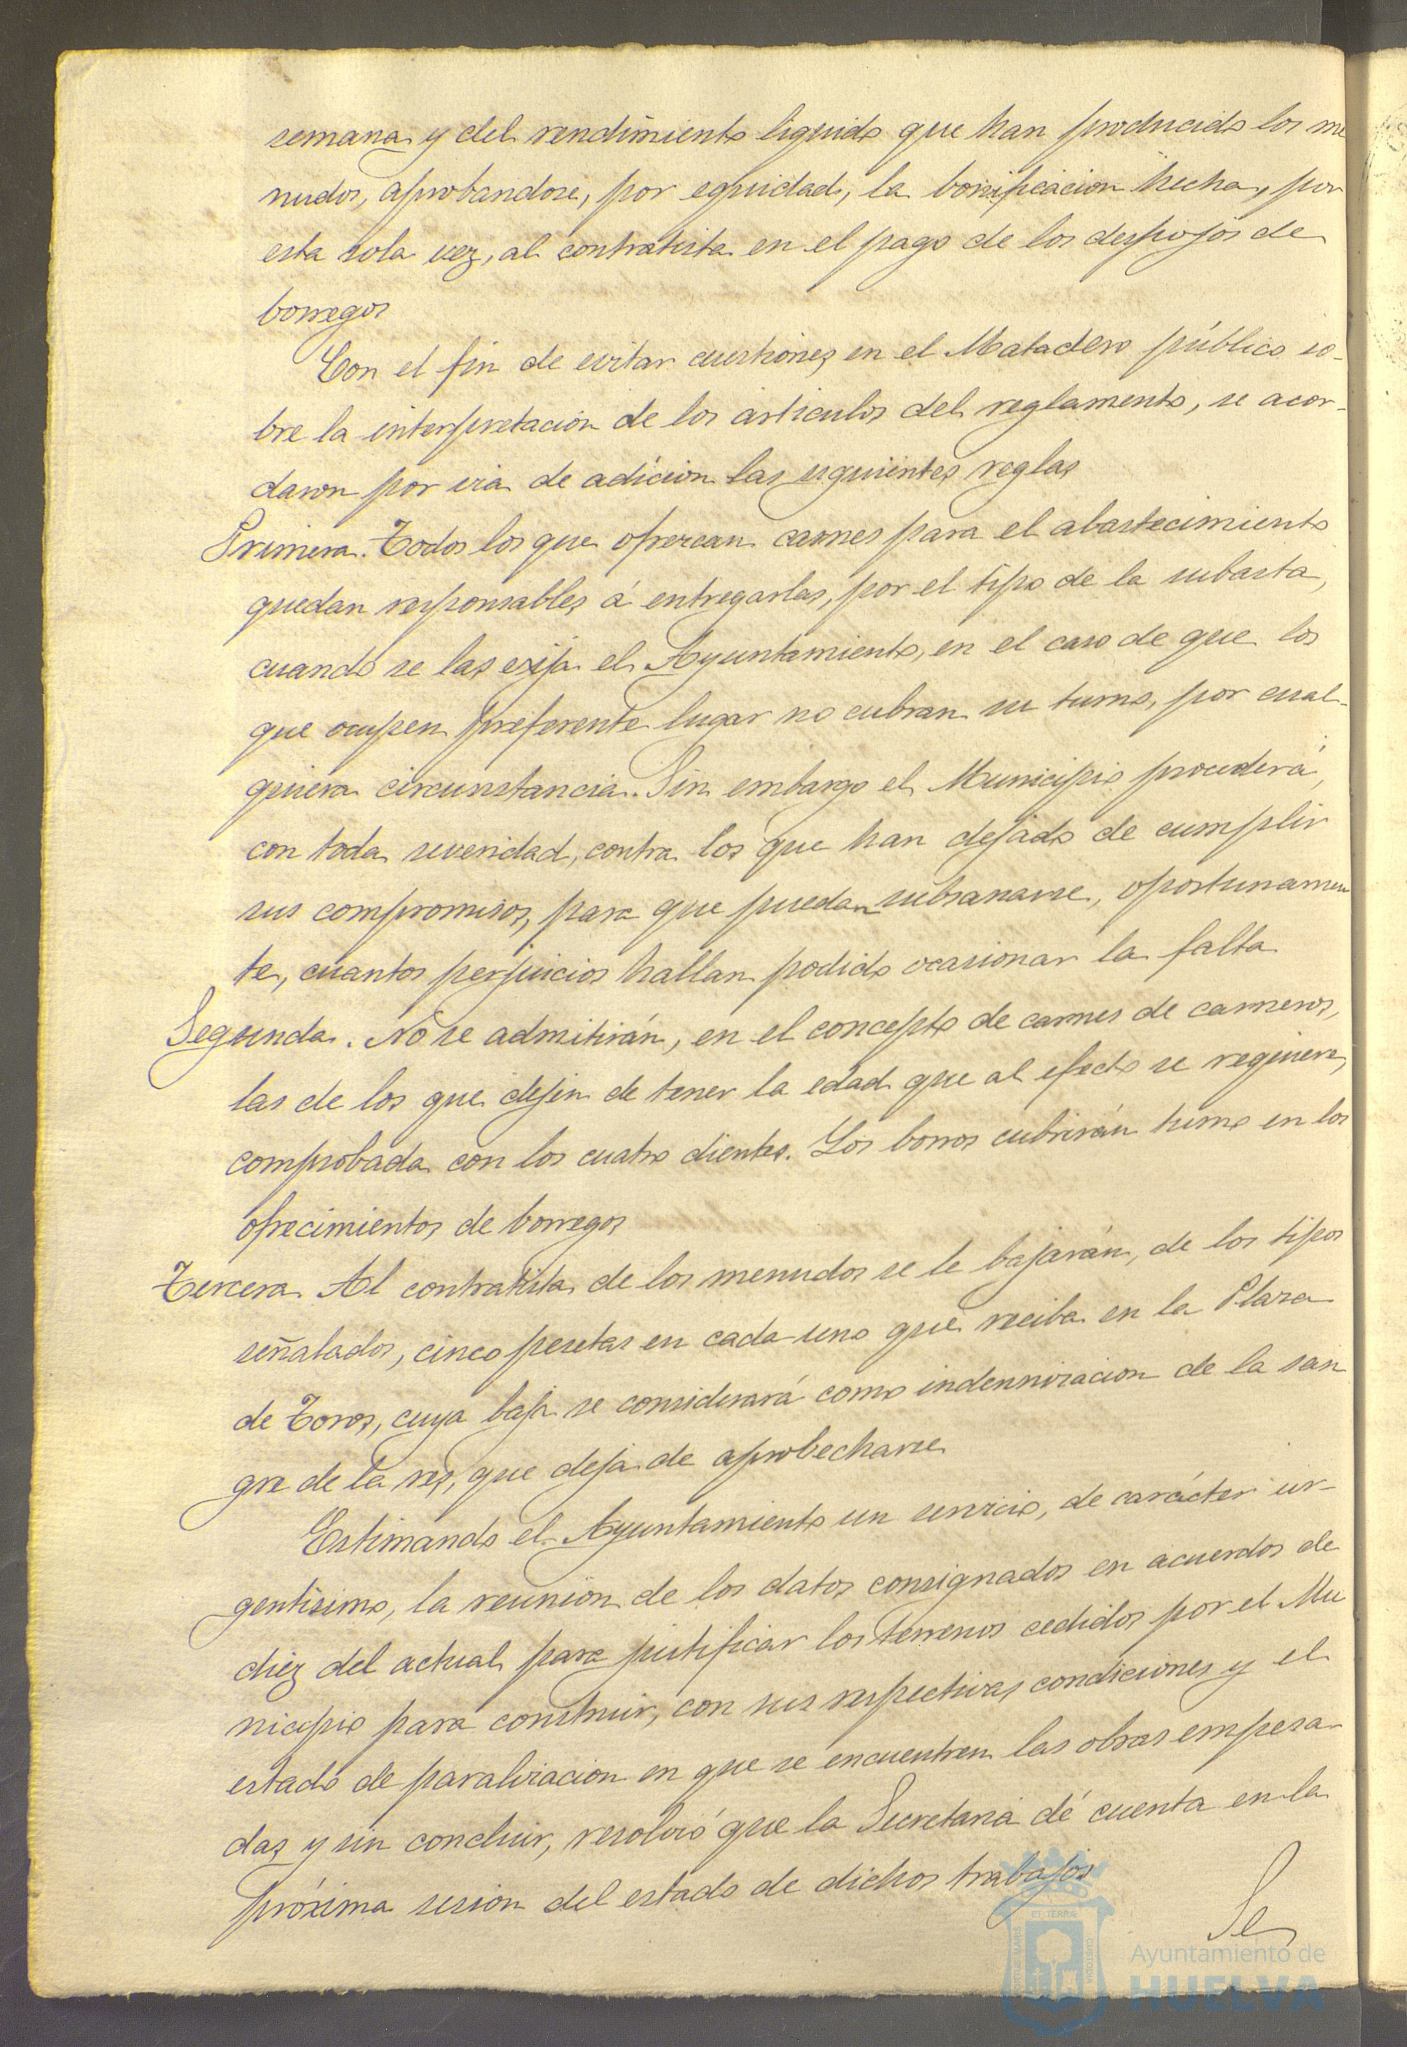 semana y del rendimiento liquido que han producido los me
nudos, aprobandose, por equidad, la bonificacion hecha, por
esta sola vez, al contratista en el pago de los despojos de
borregos
Con el fin de evitar cuestiones en el Matadero público so-
bre la interpretación de los articulos del reglamento, se acor-
daron por via de adicion las siguientes reglas
Primera. Todos los que ofrezcan carnes para el abastecimiento
quedan responsables á entregarlas, por el tipo de la subasta,
cuando se las exija el Ayuntamiento, en el caso de que los
que ocupen preferente lugar no cubran su turno, por cual-
quiera circunstancia. Sin embargo el Municipio procederá,
con toda severidad, contra los que han dejado de cumplir
sus compromisos, para que puedan subsanarse, oportunamen
te, cuantos perjuicios hallan podido ocasionar la falta
Segunda. No se admitirán, en el concepto de carnes de carneros,
las de los que dejen de tener la edad que al efecto se requiere,
comprobada con los cuatro dientes. Los borros cubrirán turno en los
ofrecimientos de borregos
Tercera. Al contratista de los menudos se le bajarán, de los tipos
señalados, cinco pesetas en cada uno que reciba en la Plaza
de Toros, cuya baja se considerará como indemnizacion de la san
gre de la res, que deja de aprobecharse
Estimando el Ayuntamiento un servicio, de carácter ur-
gentisimo, la reunion de los datos consignados en acuerdos de
diez del actual para justificar los terrenos cedidos por el Mu
nicipio para construir, con sus respectivas condiciones y el
estado de paralizacion en que se encuentren las obras empeza-
das y sin concluir, resolvió que la Secretaria dé cuenta en la
próxima sesion del estado de dichos trabajos
Se
Ayuntamiento de
HUELVA